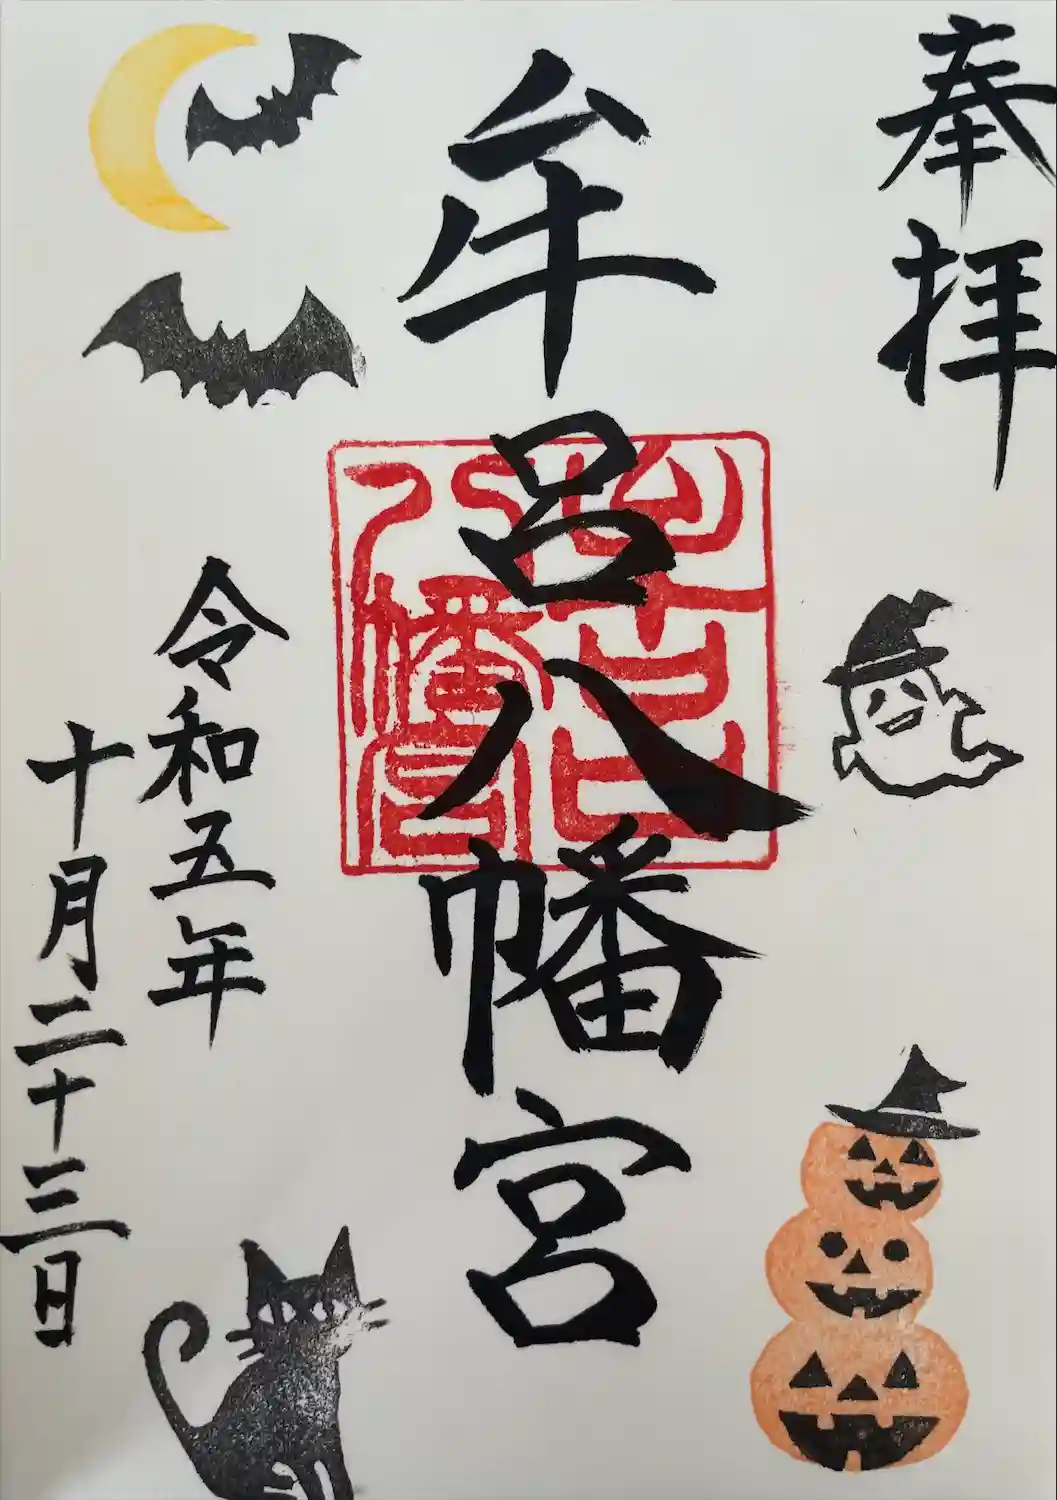 奉拝
牟呂八幡宮
牟呂八幡宮
令和五年
十月二十三日